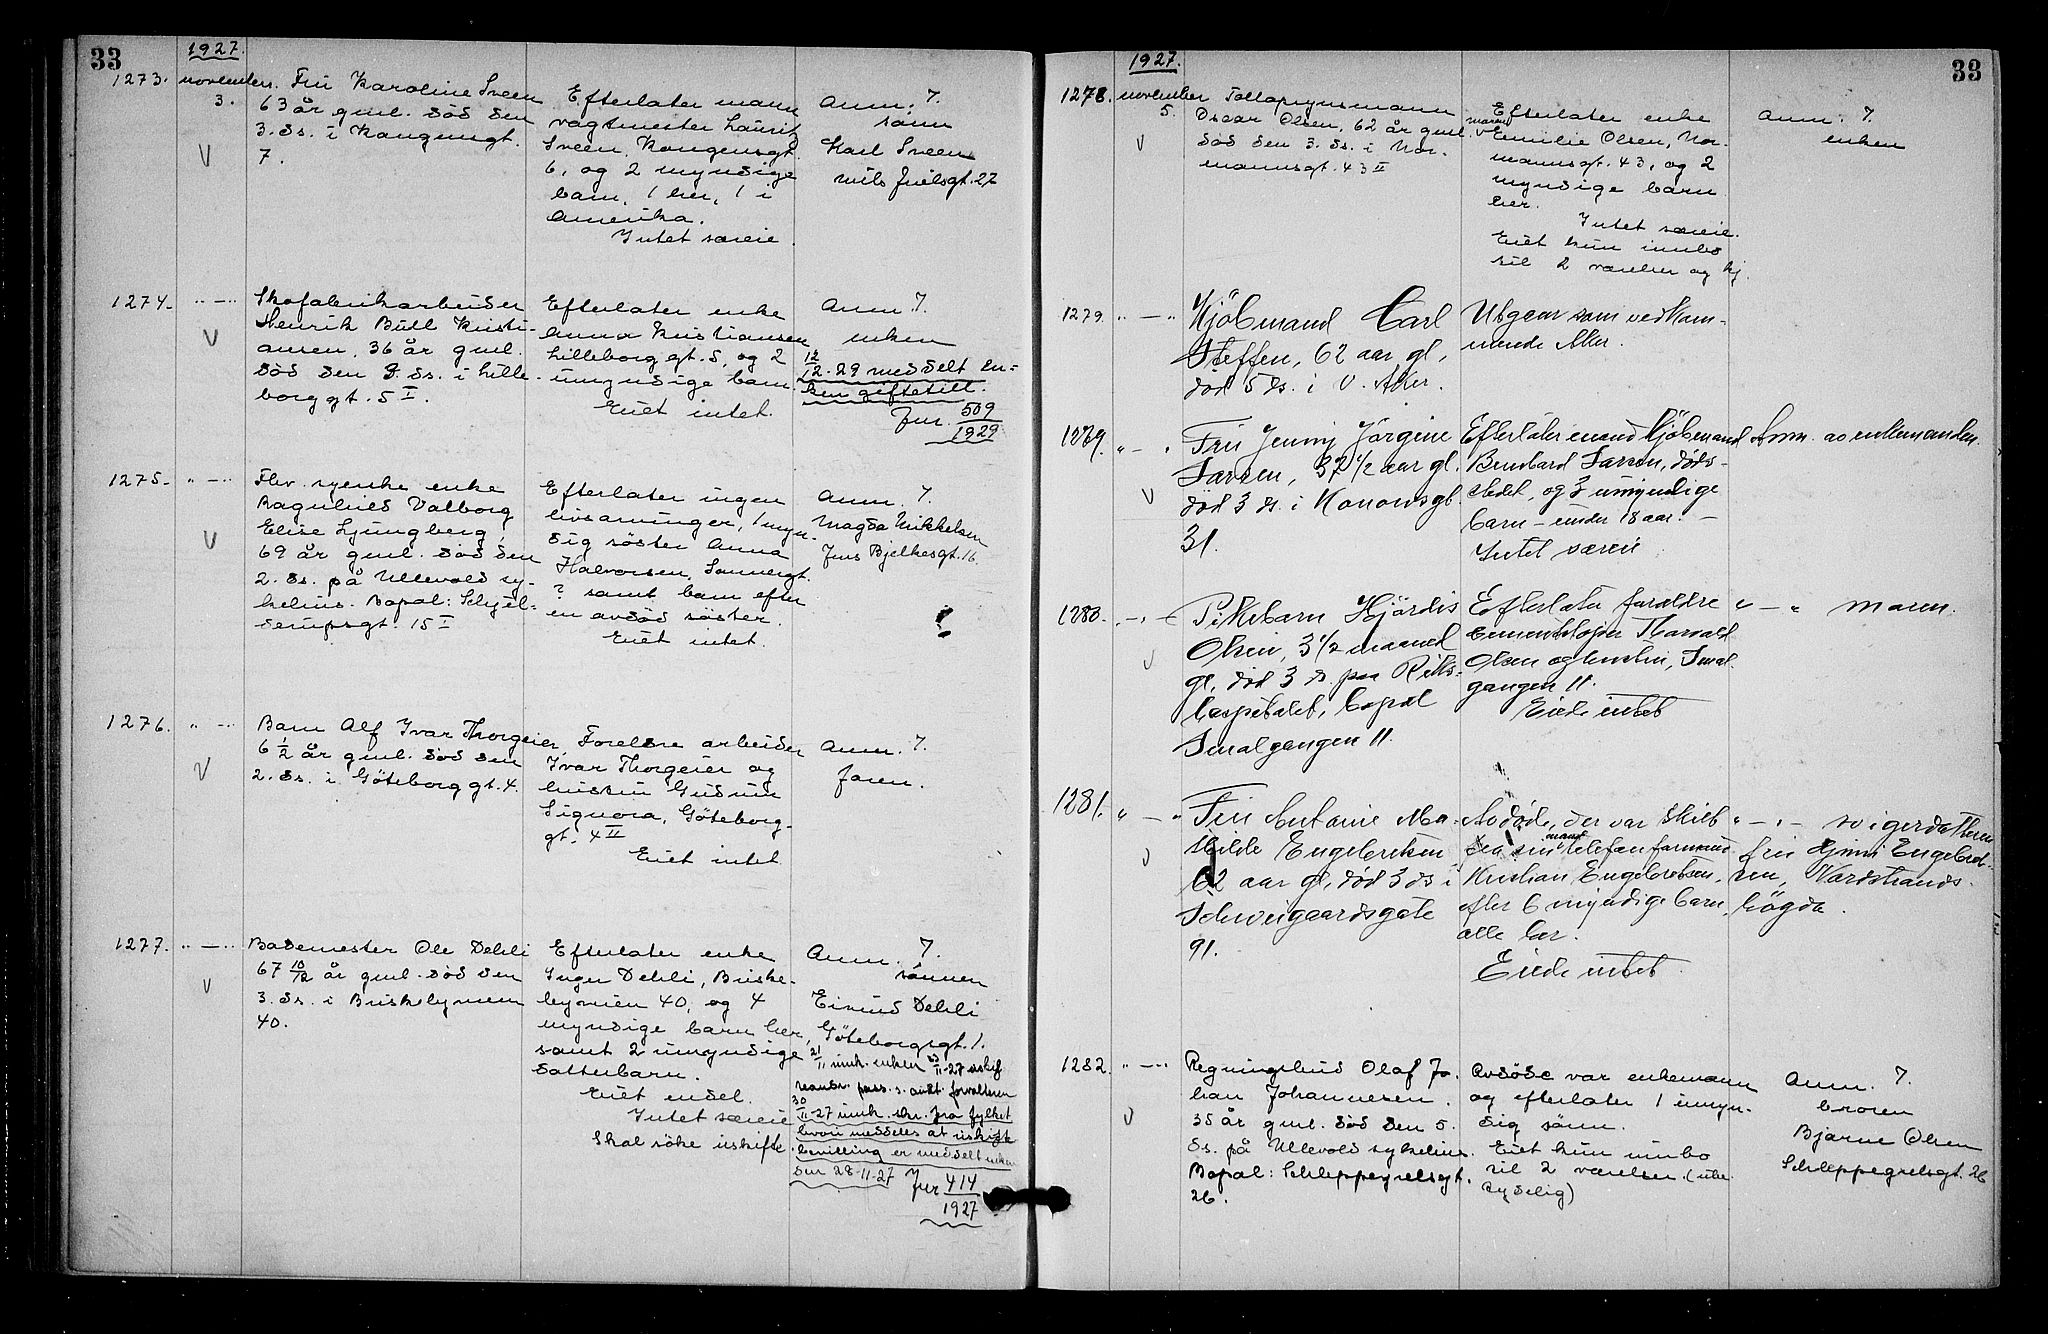 33
1927.
1273. november 3. Fru Karoline Sveen
63 år gml. död den
3. ds. i Kongensgt.
7.
Efterlater mann
vagtmester Laurits
Sveen, Kongensgt.
6, og 2 myndige
barn, 1 her, 1 i
Amerika.
Intet særeie.
Anm. 7.
sönn
Karl Sveen
Nils Juelsgt. 27
1274. " — " Skofabrikarbeider
Henrik Bull Kristi-
ansen, 36 år gml.
död den 3. ds. i Lille-
borggt. 5 I.
Efterlater enke
Anna Kristiansen
Lilleborggt. 5, og 2
umyndige barn.
Eiet intet.
Anm. 7.
enken
12/12-29 meddelt en-
ken giftetill.
Jur. 509/1929
1275. " — " Fhv. syerske enke
Ragnhild Valborg
Elise Ljungberg
69 år gml. död den
2. ds. på Ullevold sy-
kehus. Bopæl: Schjel-
derupsgt. 15 I
Efterlater ingen
livsarvinger, 1 myn-
dig söster Anna
Halvorsen, Sannergt.
? samt barn efter
en avdöd söster.
Eiet intet.
Anm. 7.
Magda Mikkelsen
Jens Bjelkesgt. 16
1276. " — " Barn Alf Ivar Thorgeier,
6 1/2 år gml. död den
2. ds. i Göteborggt. 4.
Foreldre arbeider
Ivar Thorgeier og
hustru Gudrun
Signora, Göteborg-
gt. 4 II
Eiet intet
Anm. 7.
faren.
1277. " — " Bademester Ole Dehli
67 10/12 år gml. död den
3. ds. i Briskebyveien
40.
Efterlater enke
Inger Dehli, Briske-
byveien 40, og 4
myndige barn her,
samt 2 umyndige
datterbarn.
Eiet endel.
Intet særeie
Skal söke uskifte.
Anm. 7.
sönnen
Eivind Dehli
Göteborgsgt. 1.
21/11 innk. enken
30/11-27 innk. skr. fra fylket
hvori meddeles at uskifte
bevilling er meddelt enken
den 28-11-27 Jur 414/1927
33
1927.
1278. november 5. Tollopsynsmann
Oscar Olsen, 62 år gml.
död den 3. ds. i Nor-
mannsgt. 43 II
Efterlater enke
Maren Emilie Olsen, Nor-
mannsgt. 43, og 2
myndige barn
her.
Intet særeie.
Eiet kun innbo
til 2 værelser og kj.
Anm. 7.
enken
1279. " — " Kjöbmand Carl
Steffen, 62 aar gl,
död 5 ds. i V. Aker.
Utgaar som vedkom-
mende Aker.
1279. " — " Fru Jenny Jörgine
Larsen, 37 1/2 aar gl.
död 3 ds. i Konowsgt.
31.
Efterlater mand kjöbmand
Bernhard Larsen, döds-
stedet, og 3 umyndige
barn – under 18 aar. –
Intet særeie
Anm. av enkemanden.
1280. " — " Pikebarn Hjördis
Olsen, 3 1/2 maaned
gl, död 3 ds. paa Riks-
hospitalet, bopæl
Smalgangen 11.
Efterlater forældre
cementstöper Thorvald
Olsen og hustru, Smal-
gangen 11.
Eiede intet
" — " moren.
1281. " — " Fru Antonie Ma-
thilde Engebretsen
62 aar gl, död 3 ds i
Schweigaardsgate
91.
Avdöde, der var skilt
fra sin mand telefonformand
Kristian Engebretsen,
efter 6 myndige barn,
alle her.
Eiede intet.
" — " svigerdatteren
fru Engebret-
sen, Nordstrands-
högda.
1282. " — " Regningsbud Olaf Jo-
han Johannesen.
35 år gml. död den 5.
ds. på Ullevold sykehus.
Bopæl: Schleppegrelsgt.
26.
Avdöde var enkemann
og efterlater 1 umyn-
dig sönn.
Eiet kun innbo
til 2 værelser. (ube-
tydelig)
Anm. 7.
broren
Bjarne Olsen
Schleppegrelsgt. 26